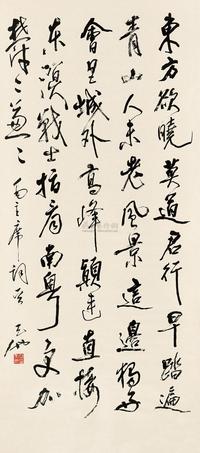 東方欲曉莫道君行早踏遍
青山人未老風景這邊獨好
會昌城外高峰顛連直接
東溟戰士指看南粵更加
鬱鬱蔥蔥 毛主席詞